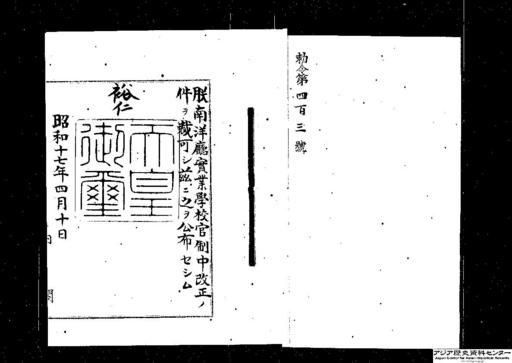 勅令第四百三號
朕南洋廳實業學校官制中改正ノ
件ヲ裁可シ茲ニ之ヲ公布セシム
裕仁
天皇
御璽
昭和十七年四月十日
アジア歴史資料センター
Japan Center for Asian Historical Records